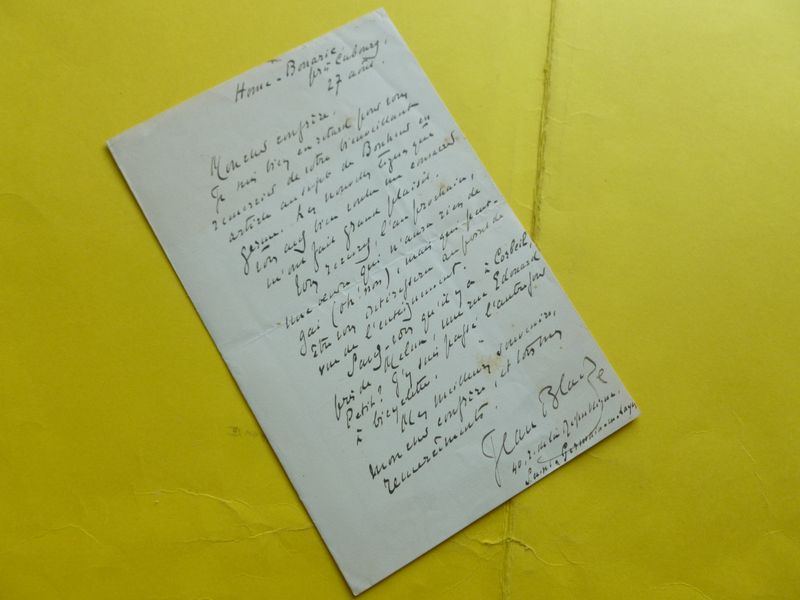 Home-Bonarie,
près Cabourg,
27 août.
Mon cher confrère,
Je suis bien en retard pour vous
remercier de votre bienveillant
article au sujet de Bonheur en
germe. Les nouvelles lignes que
vous avez bien voulu me consacrer
m'ont fait grand plaisir.
Vous recevrez, l'an prochain,
une œuvre qui n'aura rien de
gai (oh! non), mais qui peut-
être vous intéressera au point de
vue de l'enseignement.
Savez-vous qu'il y a à Corbeil,
près de Melun, une rue Edouard
Petit? J'y suis passé l'autre jour
à bicyclette.
Mes meilleurs souvenirs,
mon cher confrère, et tous mes
remerciements.
Jean Blaize
40, r. de la République,
Saint-Germain-en-Laye